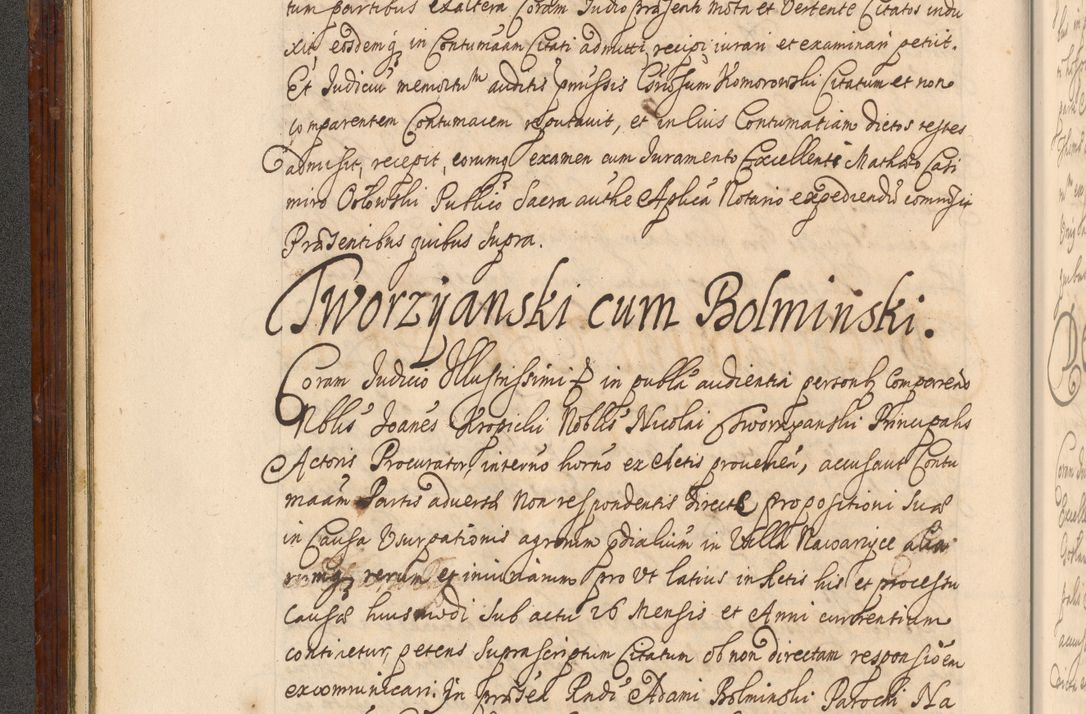 tum partibus exaltera Coram Judio præsenti mota et Vertente Citatos indu
xit eosdemq in Contumaam Citati admitti, recipi, iurari et examinari petiit.
Et Judiciu memortũ auditis pmissis Komorowski Citatum et non
comparentem Contumacem reputauit, et in eius Contumatiam dictos testes
admisit, recepit, eorumq examen cum Juramento Excellenti Mathæo Casi
miro Orłowski Publico Sacra authe Aplica Notario expediendũ commisit
Præsentibus quibus supra.
Tworzyanski cum Bolminski.
Coram Judicio Illustrissimi & in publa audientia personl Comparens
Nblis Joanes Kropichi Noblis Nicolai Tworzyanski Principalis
Actoris Procurator, interno horno ex Actis proueneñ, accusauit Contu
maam Partis aduersæ non respondentis directe propositioni Suæ
in Causa Vsurpationis agrorum pdialium in Villa Nawarizce alia
rumq rerum et iniuriarum pro vt latius in Actis his et processu
causæ huiusmodi Sub actu 26 Mensis et Anni currentium
continetur, petens Suprascriptum Citatum ob non directam responsioẽm
excommunicari. In præsea Rndi Adami Bolminski Parochi Na